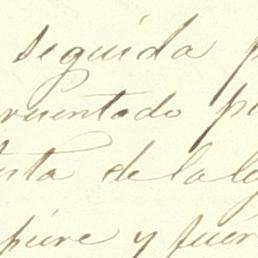 seguida p
ruentado p
sta de la ley
pire y fuer